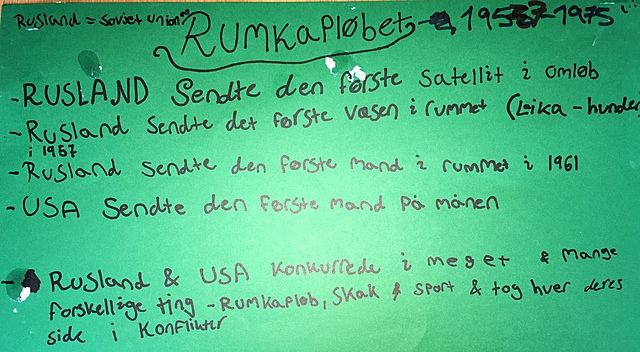 Rusland = Soviet Unionen
RUMKAPLØBET 1957-1975
- RUSLAND Sendte den første satellit i omløb
- Rusland sendte det første væsen i rummet (Laika - hunden
i 1957
- Rusland sendte den første mand i rummet i 1961
- USA Sendte den første mand på månen
- Rusland & USA konkurrede i meget & mange
forskellige ting - Rumkapløb, Skak & sport & tog hver deres
side i Konflikter